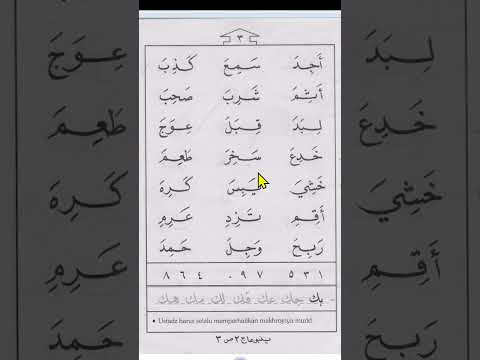 ٣
أَجِدَ سَمِعَ كَذِبَ
أَثِمَ شَرِبَ صَحِبَ
لِبَدَ قِبَلَ عِوَجَ
خَدِعَ سَخِرَ طَعِمَ
خَشِيَ يَبِسَ كَرِهَ
أَقِمِ تَزِدِ عَرِمِ
رَبِحَ وَجِلَ حَمِدَ
١ ٣ ٥ ٧ ٩ ٠ ٤ ٦ ٨
بك جك عك فك لك مك هك
• Ustadz harus selalu memperhatikan makhrojnya murid
ج ٢ ص ٣